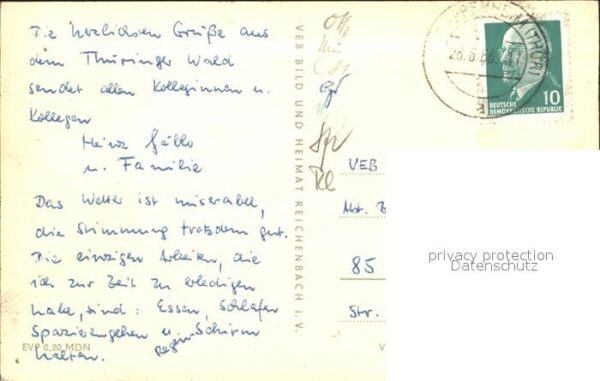 Die herzlichsten Grüße aus
dem Thüringer Wald
sendet allen Kolleginnen u.
Kollegen
Heinz
u. Familie
Das Wetter ist miserabel,
die Stimmung trotzdem gut.
Die einzigen Arbeiten, die
ich zur Zeit zu erledigen
habe, sind: Essen, Schlafen
Spazierengehen u. Regen-Schirm
halten.
EVP 0,20 MDN
VEB BILD UND HEIMAT REICHENBACH I. V.
(THÜR)
66
10
DEUTSCHE
DEMOKRATISCHE REPUBLIK
VEB
Abt.
85
Str.
V
privacy protection
Datenschutz